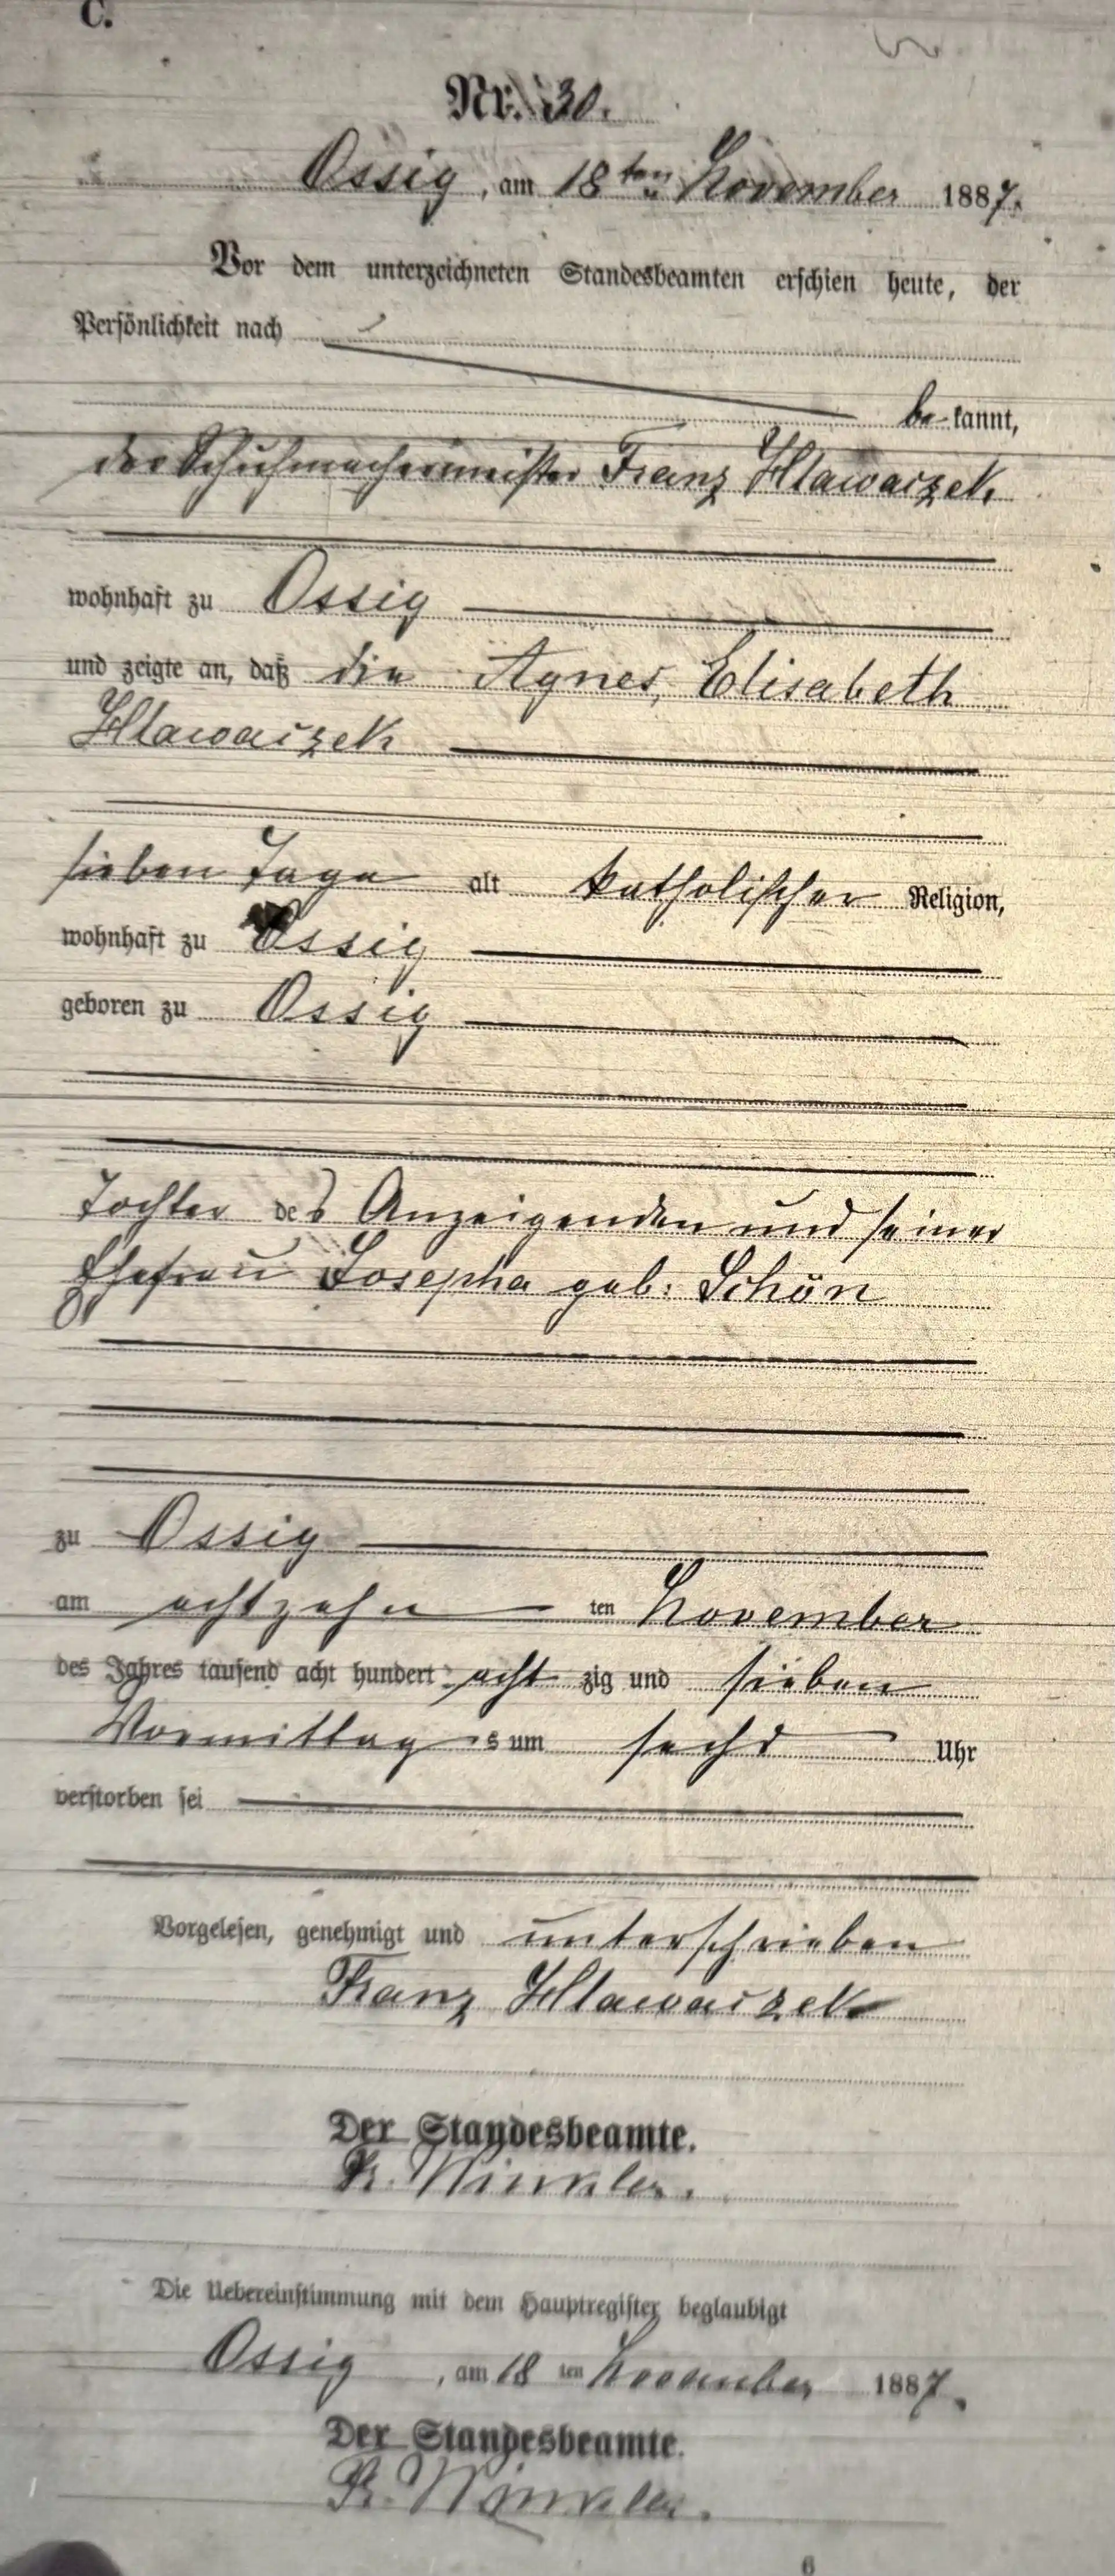 C.
Nr. 30.
Ossig, am 18ten November 1887.
Vor dem unterzeichneten Standesbeamten erschien heute, der
Persönlichkeit nach
be kannt,
der Schuhmachermeister Franz Hlawaczek
wohnhaft zu Ossig
und zeigte an, daß die Agnes, Elisabeth
Hlawaczek
sieben Tage alt katholischer Religion,
wohnhaft zu Ossig
geboren zu Ossig
Tochter des Anzeigenden und seiner
Ehefrau Josepha geb: Schön
zu Ossig
am achtzehn ten November
des Jahres tausend acht hundert acht zig und sieben
Vormittag s um sechs Uhr
verstorben sei
Vorgelesen, genehmigt und unterschrieben
Franz Hlawaczek
Der Standesbeamte.
Winkler.
Die Uebereinstimmung mit dem Hauptregister beglaubigt
Ossig, am 18 ten November 1887.
Der Standesbeamte.
Winkler.
6